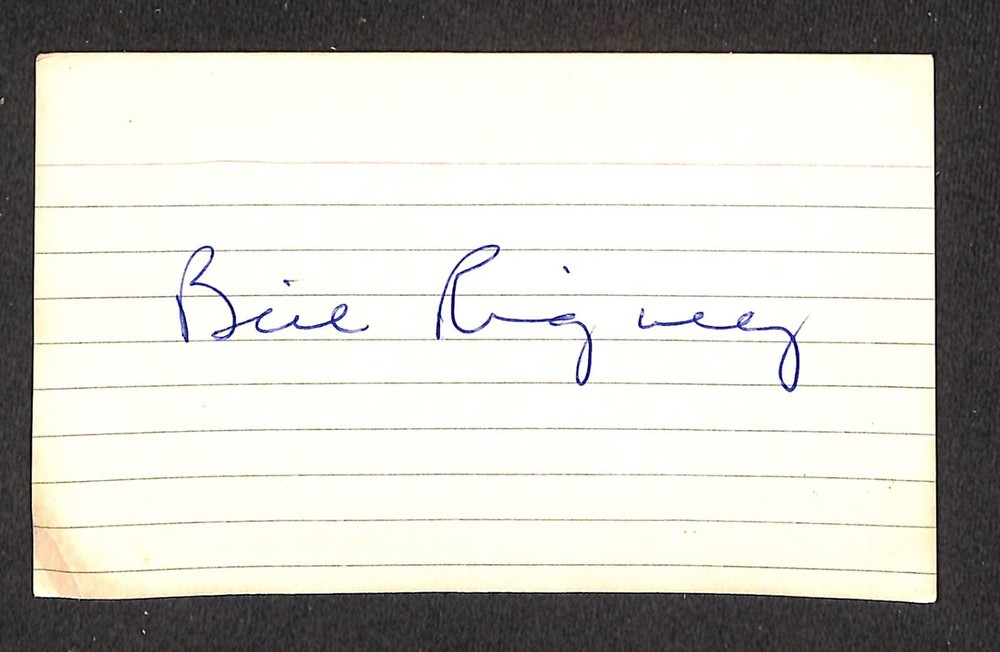 Bill Rigney